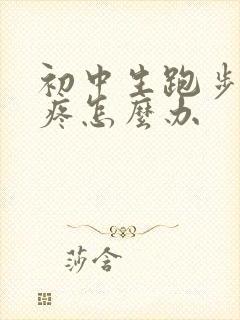 初中生跑步
疼怎麼办
莎含